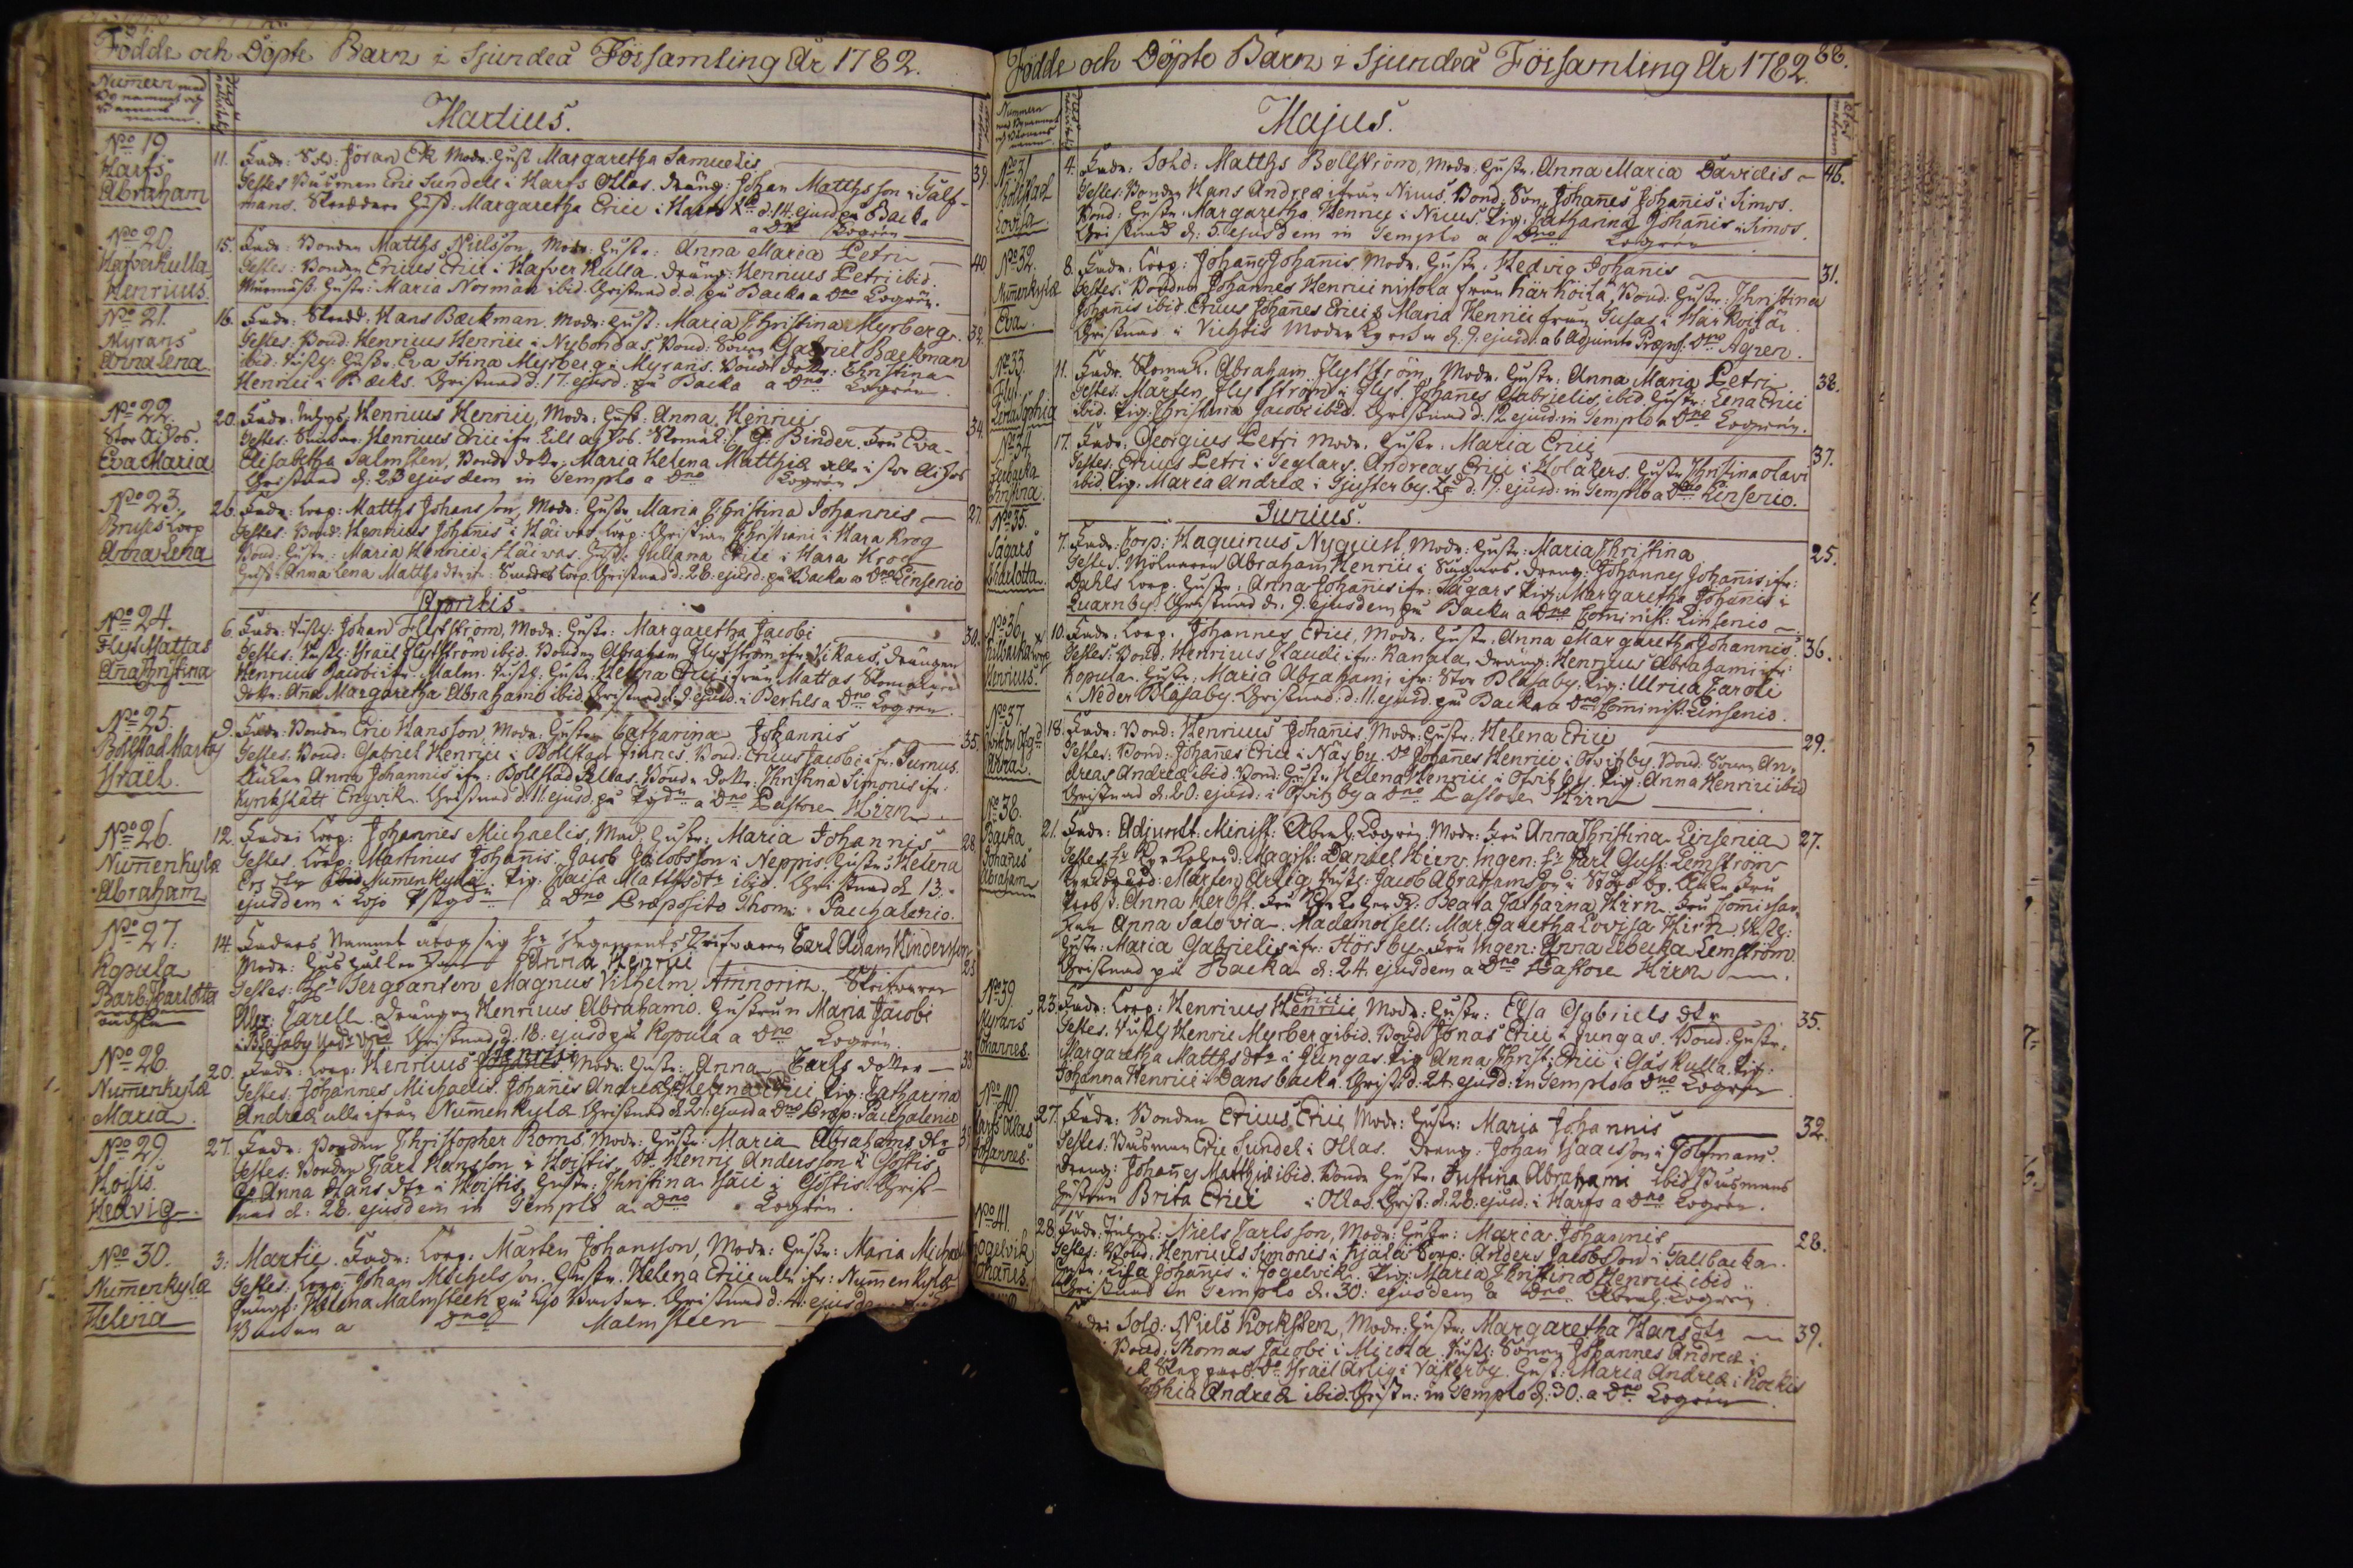 Födde och Döpte Barn i Sjundeå Församling År 1782.
Numern med
Martius.
No 19
Harfs
Abraham
11. Fadr: Sold: Jöran Ek Modr: Hust Margaretha Samuelis 39.
Testes Busman Eric Sundell i Harfs Ollas. Dräng: Johan Mattsson i
mans. Skräddare Hust: Margaretha Erici i Harfs Xts d. 14. ejusd på Backa
a Dno Logrén
No 20.
Hafverkulla
Henricus.
15. Fadr: Bonden Matths Nielsson, Modr: Hustr: Anna Maria Petri 40
Testes: Bonden Ericus Erici i Hafverkulla. Dräng: Henricus Petri ibid.
Hustr: Maria Norman ibid. Christnad d.d. på Backa a Dno Logrén.
No 21.
Myrans
Anna Lena
16. Fadr: Skrädd: Hans Backman. Modr: Hust: Maria Christina Myrberg. 32.
Testes: Bond: Henricus Henrici i Nybondas, Bond: Sonen Gabriel Backman
ibid. Hustr. Eva Stina Myrberg i Myrans. Bonde dottr: Christina
Henrici i Bäcks. Christnad d: 17. ejusd: på Backa a Dno Logrén.
No 22.
Stor Aiskos.
Eva Maria
20. Fadr: Henricus Henrici, Modr: Hust: Anna Henrici 34.
Testes: Henricus Erici ifr. Lill Binder. Fru Eva
Elisabetha Salmsten, Bonde dottr: Maria Helena Matthiæ alle i stor
Christnad d: 23 ejusdem in Templo a Dno Logrén
No 23.
Torp
Anna Lena
26. Fadr: Torp: Matths Johansson, Modr: Hustr Maria Christina Johannis 27.
Testes: Bond: Henricus Johañis i Christian Christiani i Hara Krog
Bond: Hustr: Maria Henrici i Juliana Erici i Hara Krog
Hust: Anna Lena Matths dtr Smeds Torp. Christnad d: 28. ejusd: på Backa a Dno Linsenio
Aprilis
No 24.
Flyt Mattas
Aña Christina
6. Fadr: Johan Flytström, Modr: Hustr: Margaretha Jacobi 30.
Testes: Israel Flytström ibid. Bonden Abraham Flytström ifr. Vikars. Drängen
Henricus Jacobi ifr. Malm. Hustr: Helena Erici ifrån Mattas
dottr: Aña Margaretha Abrahami ibid. Christnad d. ejusd. i Bertils a Dno Logrén.
No 25.
Bollstad Martas
Israël.
9. Fadr: Bonden Eric Hansson, Modr: Hustru Catharina Johannis 35.
Testes: Bond: Gabriel Henrici i Bollstad Finnes. Bond: Ericus Jacobi ifr. Purnus.
Anna Johannis ifr: Bollstad Ollas. Bonde dottr: Christina Simonis ifr.
Kyrkslätt Engvik. Christnad d: 11. ejusd: på a Dno Pastore Hirn
No 26.
Numenkylæ
Abraham
12. Fadr: Torp: Johannes Michaelis, Modr: Hustr: Maria Johannis 28.
Testes. Torp: Martinus Johañis. Jacob Jacobsson i Neppis. Hustr: Helena
Numenkylä. Pig. Caisa Matths dtr ibid. Christnad d 13
ejusdem i Lojo a Dno Præposito Thom: Pachalenio.
No 27.
Kopula
Barb: Charlotta
oächta
14. Faders Namnet uttog sig Hr Regements Skrifvaren Carl Adam Kinderson. 25
Modr: Anna Henrici
Testes: Hr Sergeanten Magnus Vilhelm Aminorin. Skrifvaren
Carell. Drängen Henricus Abrahami. Hustrun Maria Jacobi
Christnad d. 18. ejusd på Kopula a Dno Logrén.
No 28.
Numenkylæ
Maria
20. Fadr: Torp: Henricus Henrici Modr: Hustr: Anna Carls dotter 30
Testes: Johannes Michaelis. Johañis Andreæ Helena Erici Pig: Catharina
Andreæ alla ifrån Numenkylæ Christnad d. 21. ejusd a Dno Præp: Pachalenio
No 29
Hoisis
Hedvig
27. Fadr: Bonden Christopher Roms, Modr: Hustr: Maria Abrahams dtr
Testes: Bonden Carl Hansson i Hoistis. Do Henric Andersson i Gostis.
Anna Hans dtr i Hoistis. Hustr: Christina Isaci i Gostis. Christ-
nad d: 28. ejusdem in Templo a Dno Logrén.
No 30.
Numenkylæ
Helena
3. Martii. Fadr: Torp. Mårten Johansson, Modr: Hustr: Maria
Testes: Torp: Johan Michelsson. Hustr. Helena Erici alle ifr: Numenkylæ
Jungf: Helena Malmsteen på Christnad d: 4. ejusd
a Dno Malmsteen
Födde och Döpte Barn i Sjundeå Församling År 1782.
88.
Majus.
No 31
Bölstad
Lovisa
4. Fadr: Sold: Matths Bollström, Modr: Hustr. Anna Maria Davidis 46.
Testes: Bonden Hans Andreæ ifrån Niuus. Bond: Son: Johañes Johañis i Simos.
Bond: Hustr. Margaretha Henrici i Niuus. Pig. Catharina Johañis i Simos.
Christnad d. 5. ejusdem in Templo a Dno Logrén
No 32.
Numenkylæ
Eva.
8. Fadr. Torp: Johañes Johañis. Modr: Hustr: Hedvig Johañis 31.
Testes: Bonden Johannes Henrici från Härköilä, Bond: Hustr: Christina
Johañis ibid. Ericus Johañes Erici & Maria Henrici från i Härköilä.
Christnad i Vichtis Moder d. 9. ejusd: ab Adjuncto Præp: Dno Ågren.
No 33.
Flyt
Lena Sophia
11. Fadr. Skomak. Abraham Flytström, Modr: Hustr: Anna Maria Petri 38.
Testes: Mårten Flytström i Flyt. Johañes Gabrielis ibid. Hustr: Lena Erici
ibid. Pig: Christina Jacobi ibid. Christnad d: 12 ejusd: in Templo a Dno Logrén.
No 34.
Christina
17. Fadr. Georgius Petri Modr. Hustr. Maria Erici 37.
Testes: Ericus Petri i Teglars. Andreas Erici i Holåkers. Hustr Christina Olavi
ibid. Pig: Maria Andreæ i Gjusterby. Xt d: 19. ejusd: in Templo a Dno Linsenio.
Junius.
No 35.
Sågars
7. Fadr: Torp: Haquinus Nyquist, Modr: Hustr: Maria Christina 25.
Testes. Mölnaren Abraham Henrici i Sågars. Dräng: Johannes Johañis ifr:
Dahls Torp. Hustr. Anna Johañis ifr: Sågars Pig. Margaretha Johañis i
Quarnby. Christnad d. 9. ejusdem på Backa a Dno Comminist: Linsenio
No 36.
Lillbacka
Henricus.
10. Fadr: Torp. Johannes Erici, Modr: Hustr. Anna Margaretha Johannis 36.
Testes: Bond: Henricus Claudi ifr: Kanala. Dräng: Henricus Abrahami ifr:
Kopula. Hustr. Maria Abrahami, ifr: Stor Blåsaby. Pig: Ulrica Caroli
i Neder Blåsaby. Christnad: d: 11. ejusd. på Backa a Dno Commist: Linsenio.
No 37.
18. Fadr: Bond: Henricus Johañis, Modr: Hustr: Helena Erici 29.
Testes: Bond: Johañes Erici i Näsby. Do Johañes Henrici i Ovitzby. Bond: Sonen An-
dreas Andreæ ibid. Bond: Hustr Helena Henrici i Ovitzby. Pig: Anna Henrici ibid
Christnad d. 20: ejusd: i Ovitzby a Dno Pastore Hirn
No 38.
Backa
Johañes
Abraham
21. Fadr: Adjunct: Minist: Abrah: Logrén Modr: Fru Anna Christina Linsenia 27.
Testes Hr Magist: Daniel Hirn. Ingen: Hr Carl Gust: Lemström
Mårten Arlig, Jacob Abrahamsson i Störsby. Fru
Anna Herbst. Fru Beata Catharina Hirn. Fru Commissar.
Anna Salovia. Madamoisell: Margaretha Lovisa Hirn.
Hustr: Maria Gabrielis ifr: Störsby. Fru Ingen: Anna Rebecka Lemström
Christnad på Backa d. 24. ejusdem a Dno Pastore Hirn
No 39.
Myrans
Johannes.
23. Fadr: Torp: Henricus Erici Henrici, Modr: Hustr: Elsa Gabriels dtr 35.
Testes. Henric Myrberg ibid. Bond Jonas Erici i Jungas. Bond: Hustr:
Margaretha Matths dtr i Jungas. Pig: Anna Christ: Erici i Gåskulla. Pig:
Johanna Henrici i Dansbacka. Christ: d: 24. ejusd: in Templo a Dno Logrén
No 40.
Harfs Ollas
Johannes.
27. Fadr: Bonden Ericus Erici, Modr: Hustr: Maria Johannis 32.
Testes. Busman Eric Sundel i Ollas. Dräng: Johan Isaacsson i
Dräng: Johañes Matthiæ ibid. Bonde Hustr. Justina Abrahami ibid. Busmans
Hustru Brita Erici i Ollas. Christ: d. 28. ejusd. i Harfs a Dno Logrén.
No 41.
Fogelvik
Johañes.
28. Fadr: Niels Carlsson, Modr: Hustr: Maria Johannis 28.
Testes: Bond: Henricus Simonis i Torp: Anders Jacobsson i Tallbacka.
Hustr: Lisa Johañis i Fogelvik. Pig: Maria Christina Henrici ibid
Christnad in Templo d: 30: ejusdem a Dno Abrah: Logrén
Fadr: Sold: Niels Rocksten, Modr: Hustr: Margaretha Hans dtr 39.
Bond: Thomas Jacobi i Micola. Sonen Johannes Andreæ i
Do Israël Arlig i Väkerby. Hust: Maria Andreæ i Kockis
Andreæ ibid. Christn: in Templo d: 30: a Dno Logrén